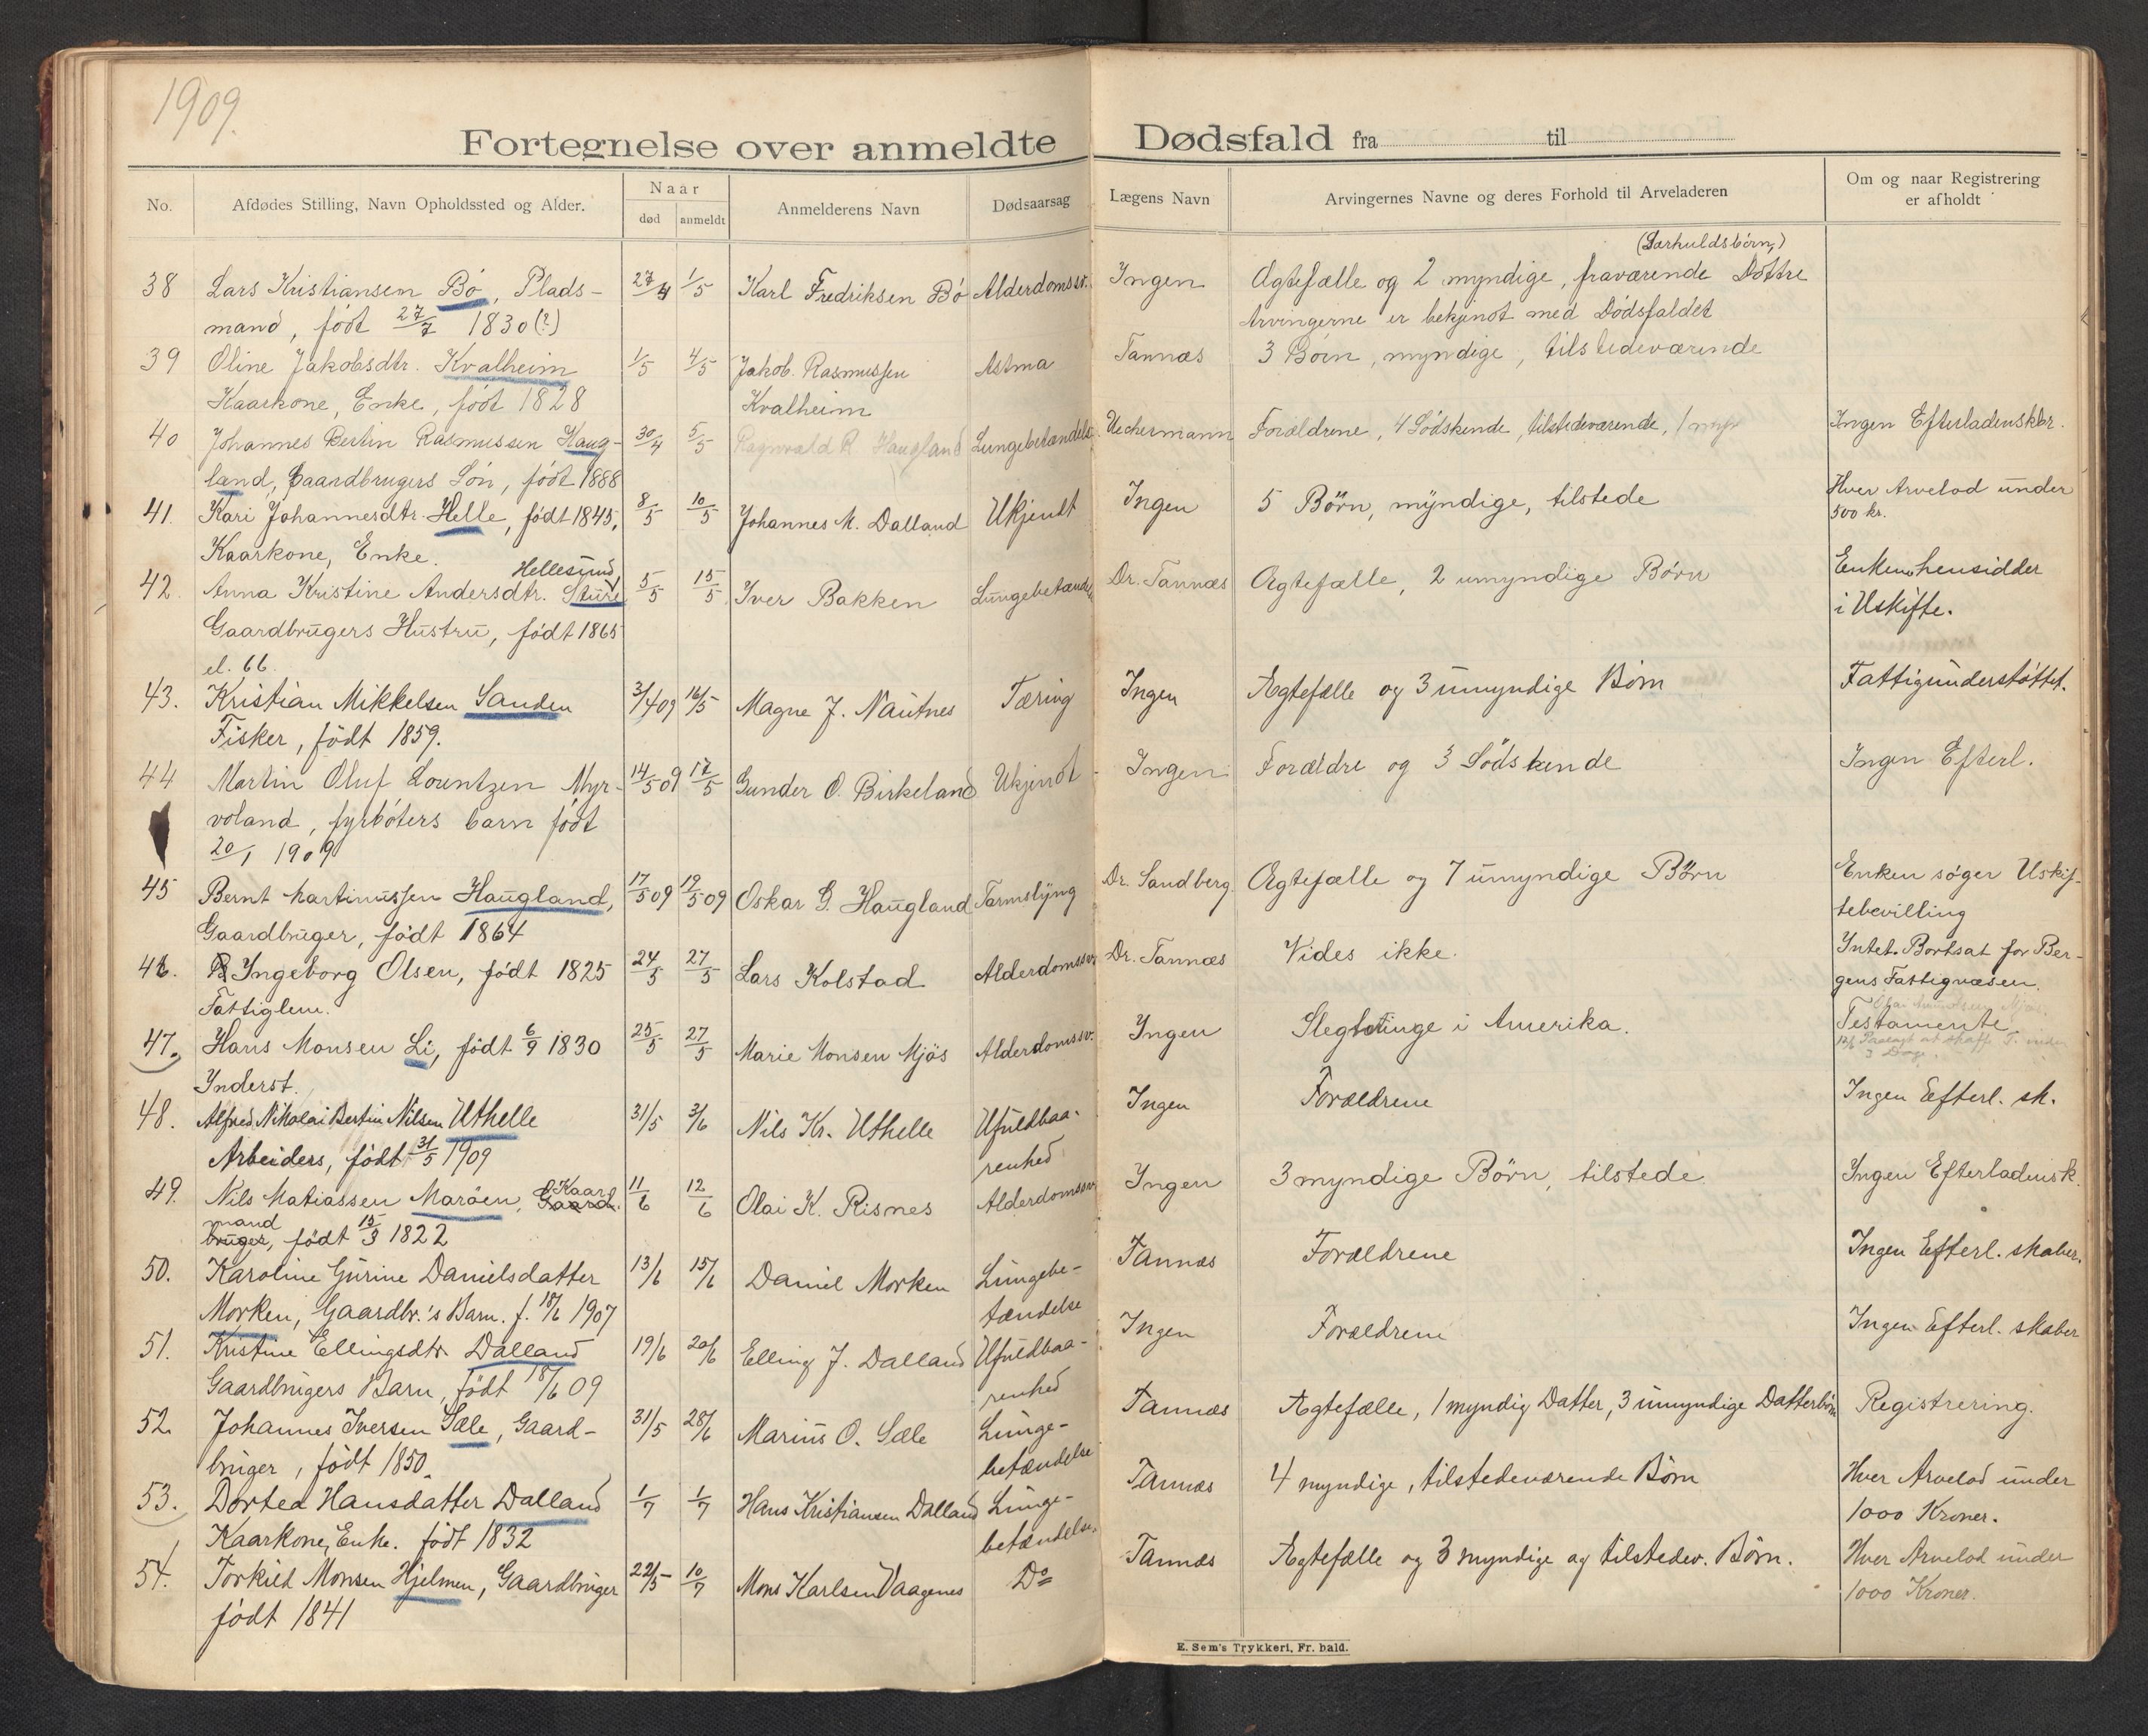 1909.
Fortegnelse over anmeldte Dødsfald fra til
No.
Afdødes Stilling, Navn Opholdssted og Alder.
Naar
død
anmeldt
Anmelderens Navn
Dødsaarsag
Lægens Navn
Arvingernes Navne og deres Forhold til Arveladeren
Om og naar Registrering
er afholdt
38 Lars Kristiansen Bö, Plads- 27/4 1/5 Karl Fredriksen Bö Alderdomssv. Ingen Ægtefælle og 2 myndige, fraværende Döttre
mand, född 27/7 1830(?) Arvingerne er bekjendt med Dödsfaldet
39 Oline Jakobsdtr. Kvalheim 1/5 4/5 Jakob Rasmussen Astma Tannæs 3 Börn, myndige, tilstedeværende
Kaarkone, Enke, född 1828 Kvalheim
40 Johannes Bertin Rasmussen Haug- 30/4 5/5 Ragnvald R. Haugland Lungebetændels. Uchermann Forældrene, 4 Södskende, tilstedeværende, 1 Ingen Efterladenskbr.
land, Gaardbrugers Sön, född 1888
41. Kari Johannesdtr. Helle, född 1845, 8/5 10/5 Johannes M. Dalland Ukjendt Ingen 5 Börn, myndige, tilstede Hver Arvelod under
500 kr.
Kaarkone, Enke.
Hellesund
42. Anna Kristine Andersdtr. Sture 5/5 15/5 Iver Bakken Lungebetænde Dr. Tannæs Ægtefælle, 2 umyndige Börn Enkem. hensidder
i Uskifte.
Gaardbrugers Hustru, född 1865
el. 66
43. Kristian Mikkelsen Sanden 3/4 09 16/5 Magne J. Nautnes Tæring Ingen Ægtefælle og 3 umyndige Börn Fattigunderstöttet.
Fisker, född 1859.
44 Martin Oluf Lorentzen Myr- 14/5 09 17/5 Gunder O. Birkeland Ukjendt Ingen Forældre og 3 Södskende Ingen Efterl.
voland, fyrböters barn född
20/1 1909
45 Bernt Martinussen Haugland, 17/5 09 19/5 09 Oskar G. Haugland Tarmslyng Dr. Sandberg. Ægtefælle og 7 umyndige Börn Enken söger Uskif-
tebevilling
Gaardbruger, född 1864
46. Ingeborg Olsen, född 1825 24/5 27/5 Lars Kolstad Alderdomssv. Dr. Tannæs Vides ikke. Intet. Bortsat for Ber-
gens Fattigvæsen.
Fattiglem.
47. Hans Monsen Li, född 6/9 1830 25/5 27/5 Marie Monsen Mjös Alderdomssv. Ingen Slegtninge i Amerika. Testamente
Inderst.
48. Alfred Nikolai Bertin Nilsen Uthelle 31/5 3/6 Nils Kr. Uthelle Ufuldbaa- Ingen Forældrene Ingen Efterl. sk.
Arbeiders, född 31/5 1909 renhed
49. Nils Matiassen Maröen, Kaar- Gaard. 11/6 12/6 Olai K. Risnes Alderdomssv. Ingen 3 myndige Börn, tilstede Ingen Efterladensk.
mand bruger, född 15/3 1822
50. Karoline Gurine Danielsdatter 13/6 15/6 Daniel Morken Lungebe- Tannæs Forældrene Ingen Efterl. skaber.
Morken, Gaardbr.'s Barn. f. 18/6 1907 tændelse
51. Kristine Ellingsdtr Dalland 19/6 20/6 Elling J. Dalland Ufuldbaa- Ingen Forældrene Ingen Efterl. skaber
Gaardbrugers Barn, född 18/6 09 renhed
52. Johannes Iversen Sæle, Gaard- 31/5 28/6 Marius O. Sæle Lunge- Tannæs Ægtefælle, 1 myndig Datter, 3 umyndige Datterbörn Registrering.
bruger, född 1850. betændelse
53. Dortea Hansdatter Dalland 1/7 1/7 Hans Kristiansen Dalland Lunge- Tannæs 4 myndige, tilstedeværende Börn Hver Arvelod under
1000 Kroner.
Kaarkone, Enke. född 1832 betændelse.
54. Torkild Monsen Hjelmen, Gaardbruger 22/5 10/7 Mons Karlsen Vaagenes Do Tannæs Ægtefælle og 3 myndige og tilstedev. Börn. Hver Arvelod under
1000 Kroner.
född 1841
E. Sem's Trykkeri, Fr. hald.